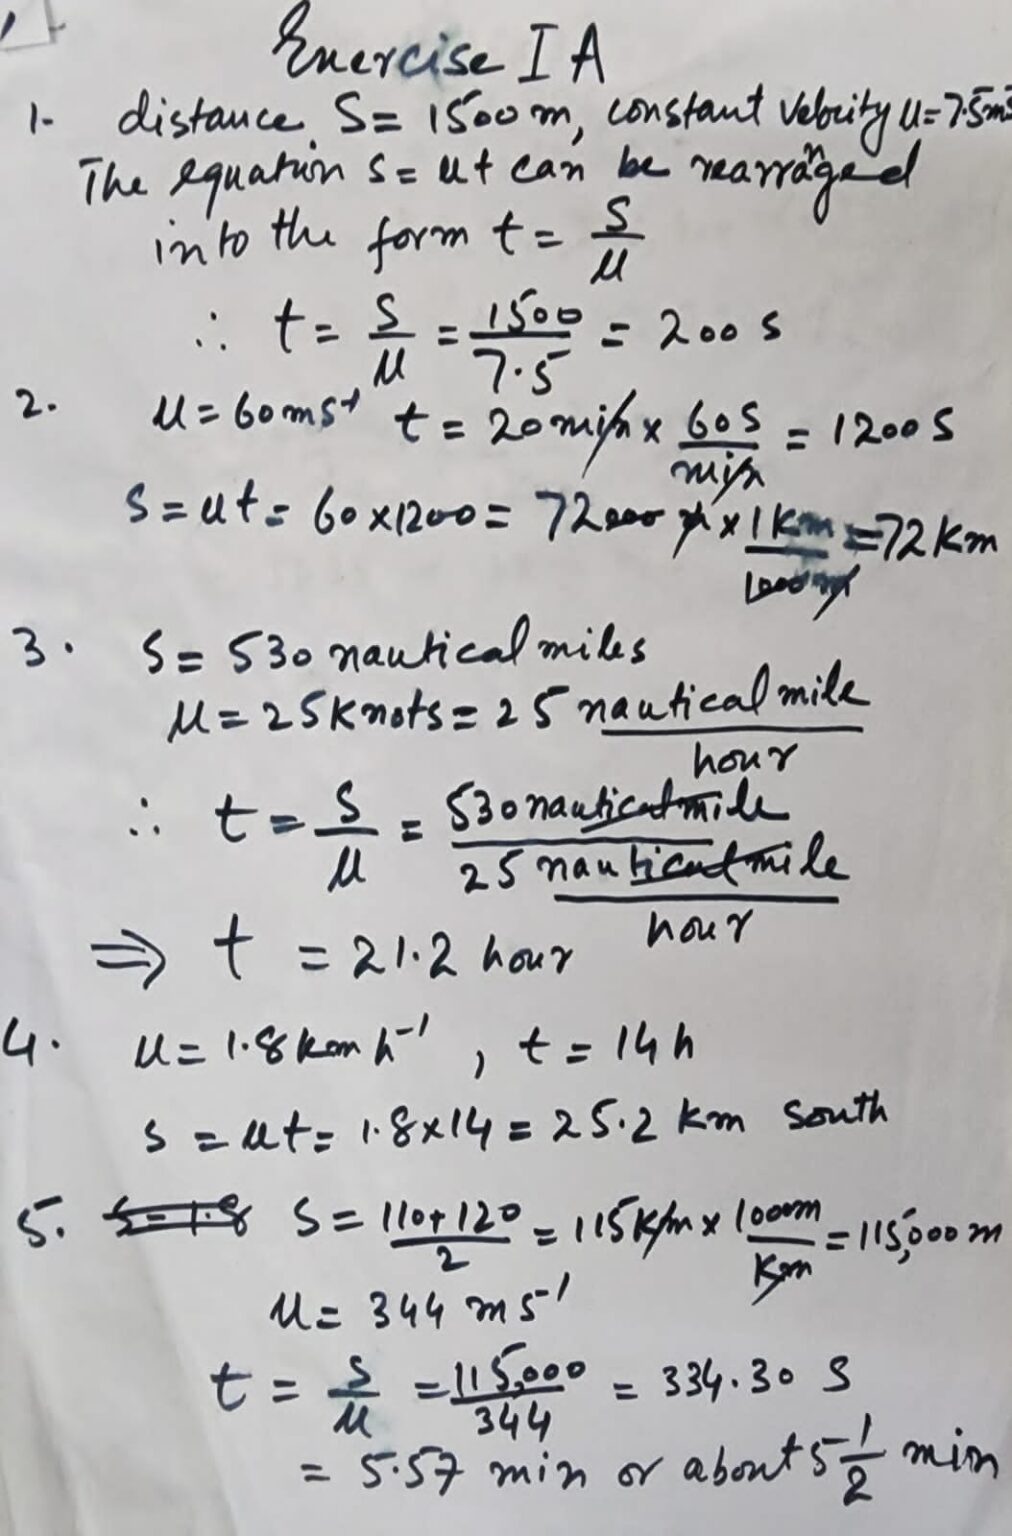 Exercise I A
1- distance S= 1500 m, constant velocity u=7.5ms
The equation s=ut can be rearranged
into the form t= S/u
∴ t= S/u = 1500/7.5 = 200 s
2. u=60ms⁻¹ t = 20 min x 60S/min = 1200 S
S=ut= 60x1200= 72000 m x 1 km/1000 m =72 Km
3. S= 530 nautical miles
u=25Knots= 25 nautical mile/hour
∴ t= S/u = 530 nautical mile/25 nautical mile/hour
⇒ t = 21.2 hour
4. u= 1.8 km h⁻¹, t= 14 h
s = ut= 1.8x14 = 25.2 km south
5. S=1.8 S= 110+120/2 = 115 Km x 1000m/Km = 115,000 m
u= 344 ms⁻¹
t = S/u = 115,000/344 = 334.30 S
= 5.57 min or about 5 1/2 min